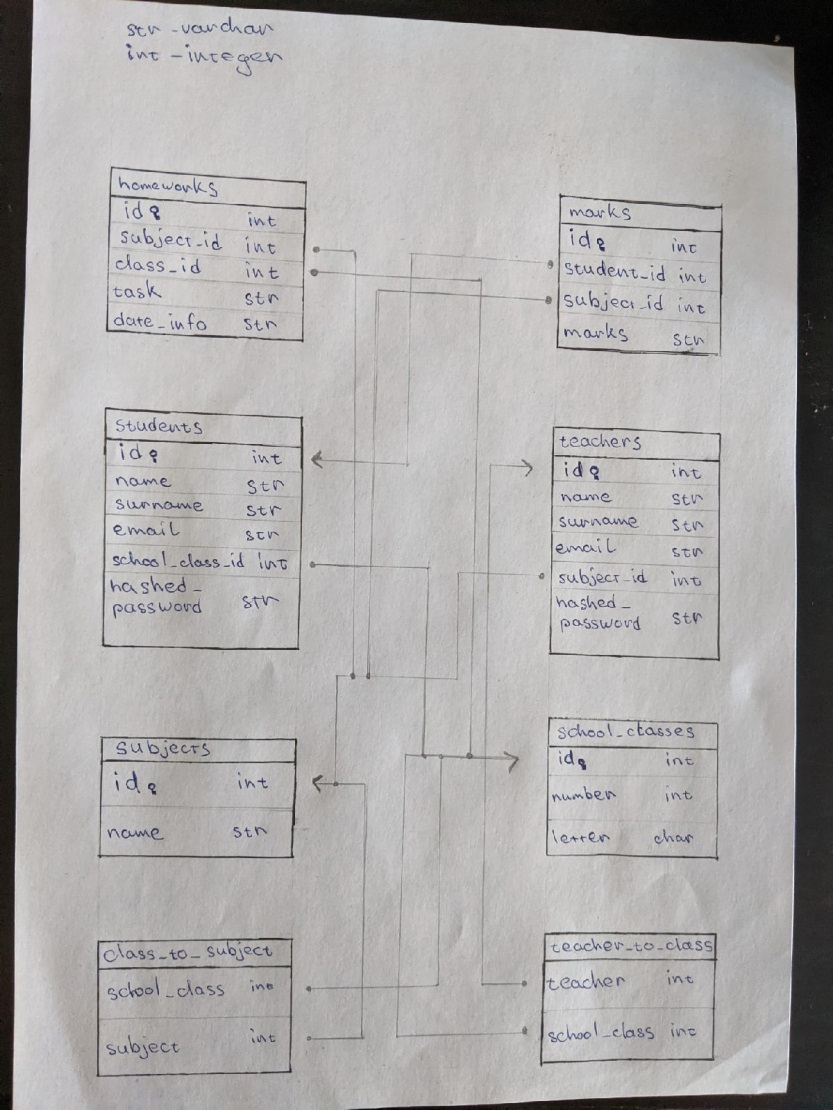 str - varchar
int - integer
homeworks
id int
subject_id int
class_id int
task str
date_info str
marks
id int
student_id int
subject_id int
marks str
students
id int
name str
surname str
email str
school_class_id int
hashed_
password str
teachers
id int
name str
surname str
email str
subject_id int
hashed_
password str
subjects
id int
name str
school_classes
id int
number int
letter char
class_to_subject
school_class int
subject int
teacher_to_class
teacher int
school_class int